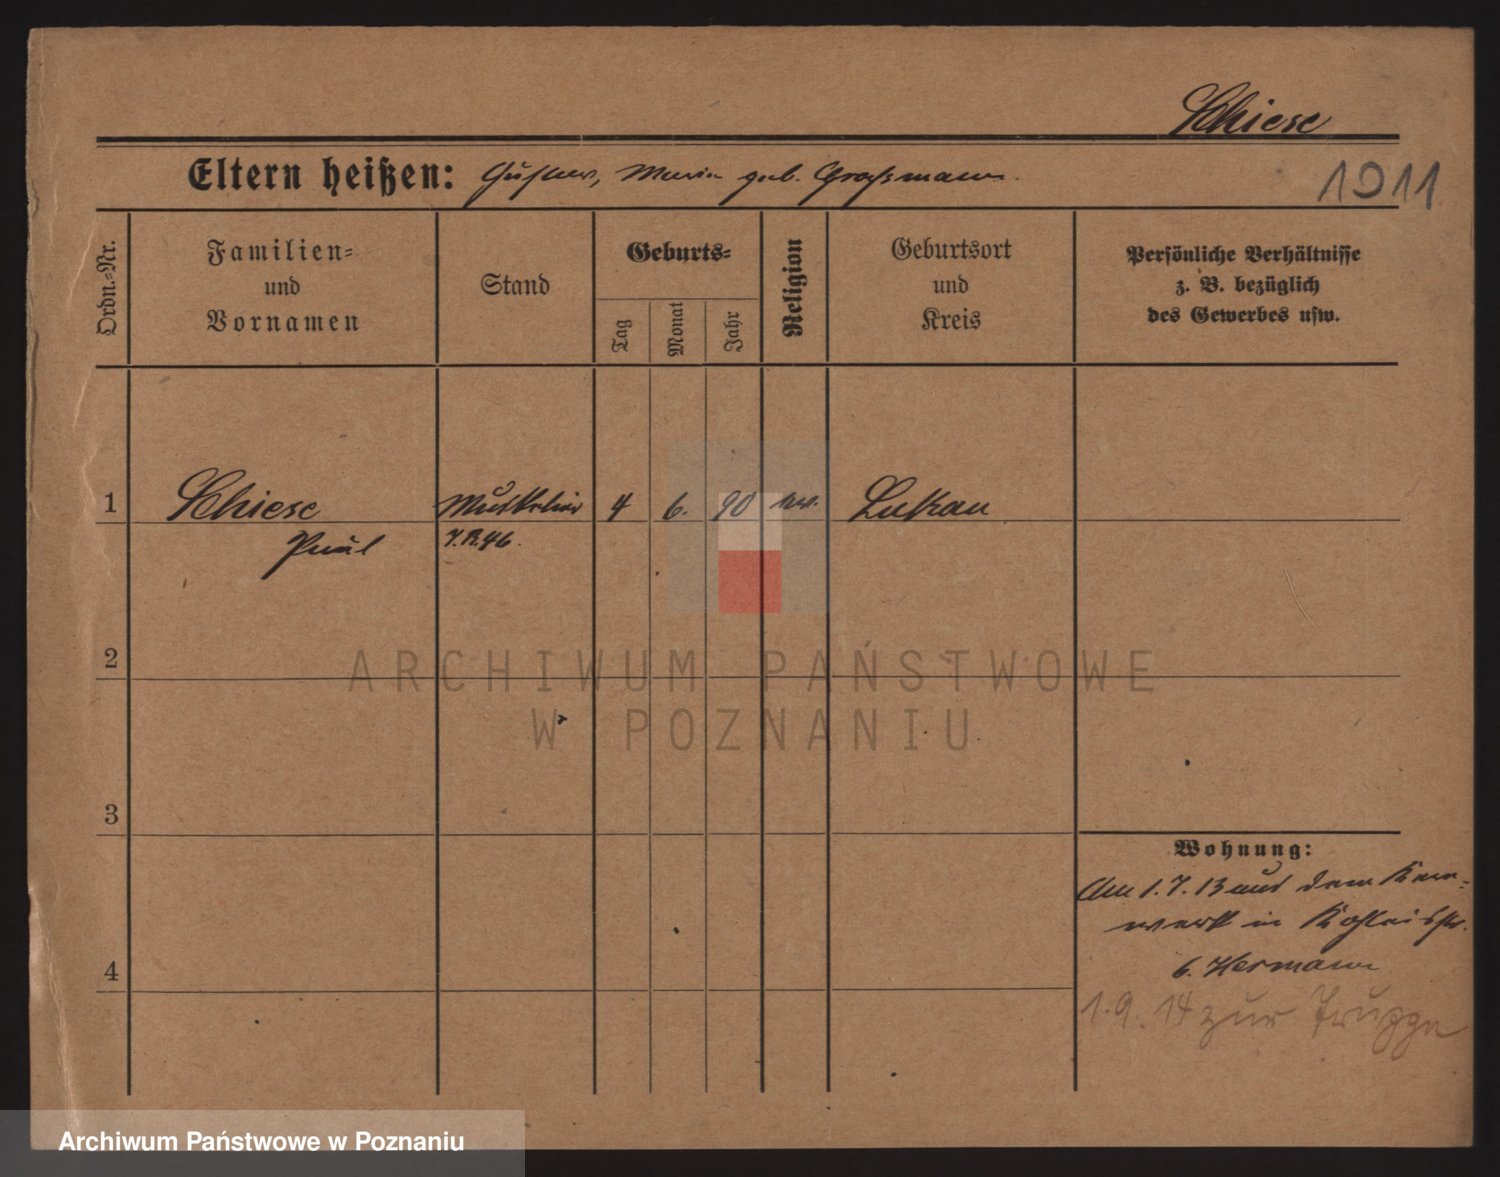 Schiese
Eltern heißen: Gustav, Maria geb. Graßmann.
1911
Ordn.-Nr.
Familien-
und
Vornamen
Stand
Geburts-
Tag
Monat
Jahr
Religion
Geburtsort
und
Kreis
Persönliche Verhältnisse
z. B. bezüglich
des Gewerbes usw.
1 Schiese Musketier 4 6. 90 ev. Lukau
Paul J.R.46.
2
ARCHIWUM PAŃSTWOWE
W POZNANIU
3
Wohnung:
Am 1.7.13 aus dem
in
b. Hermann
4
1.9.14 zur Truppe
Archiwum Państwowe w Poznaniu